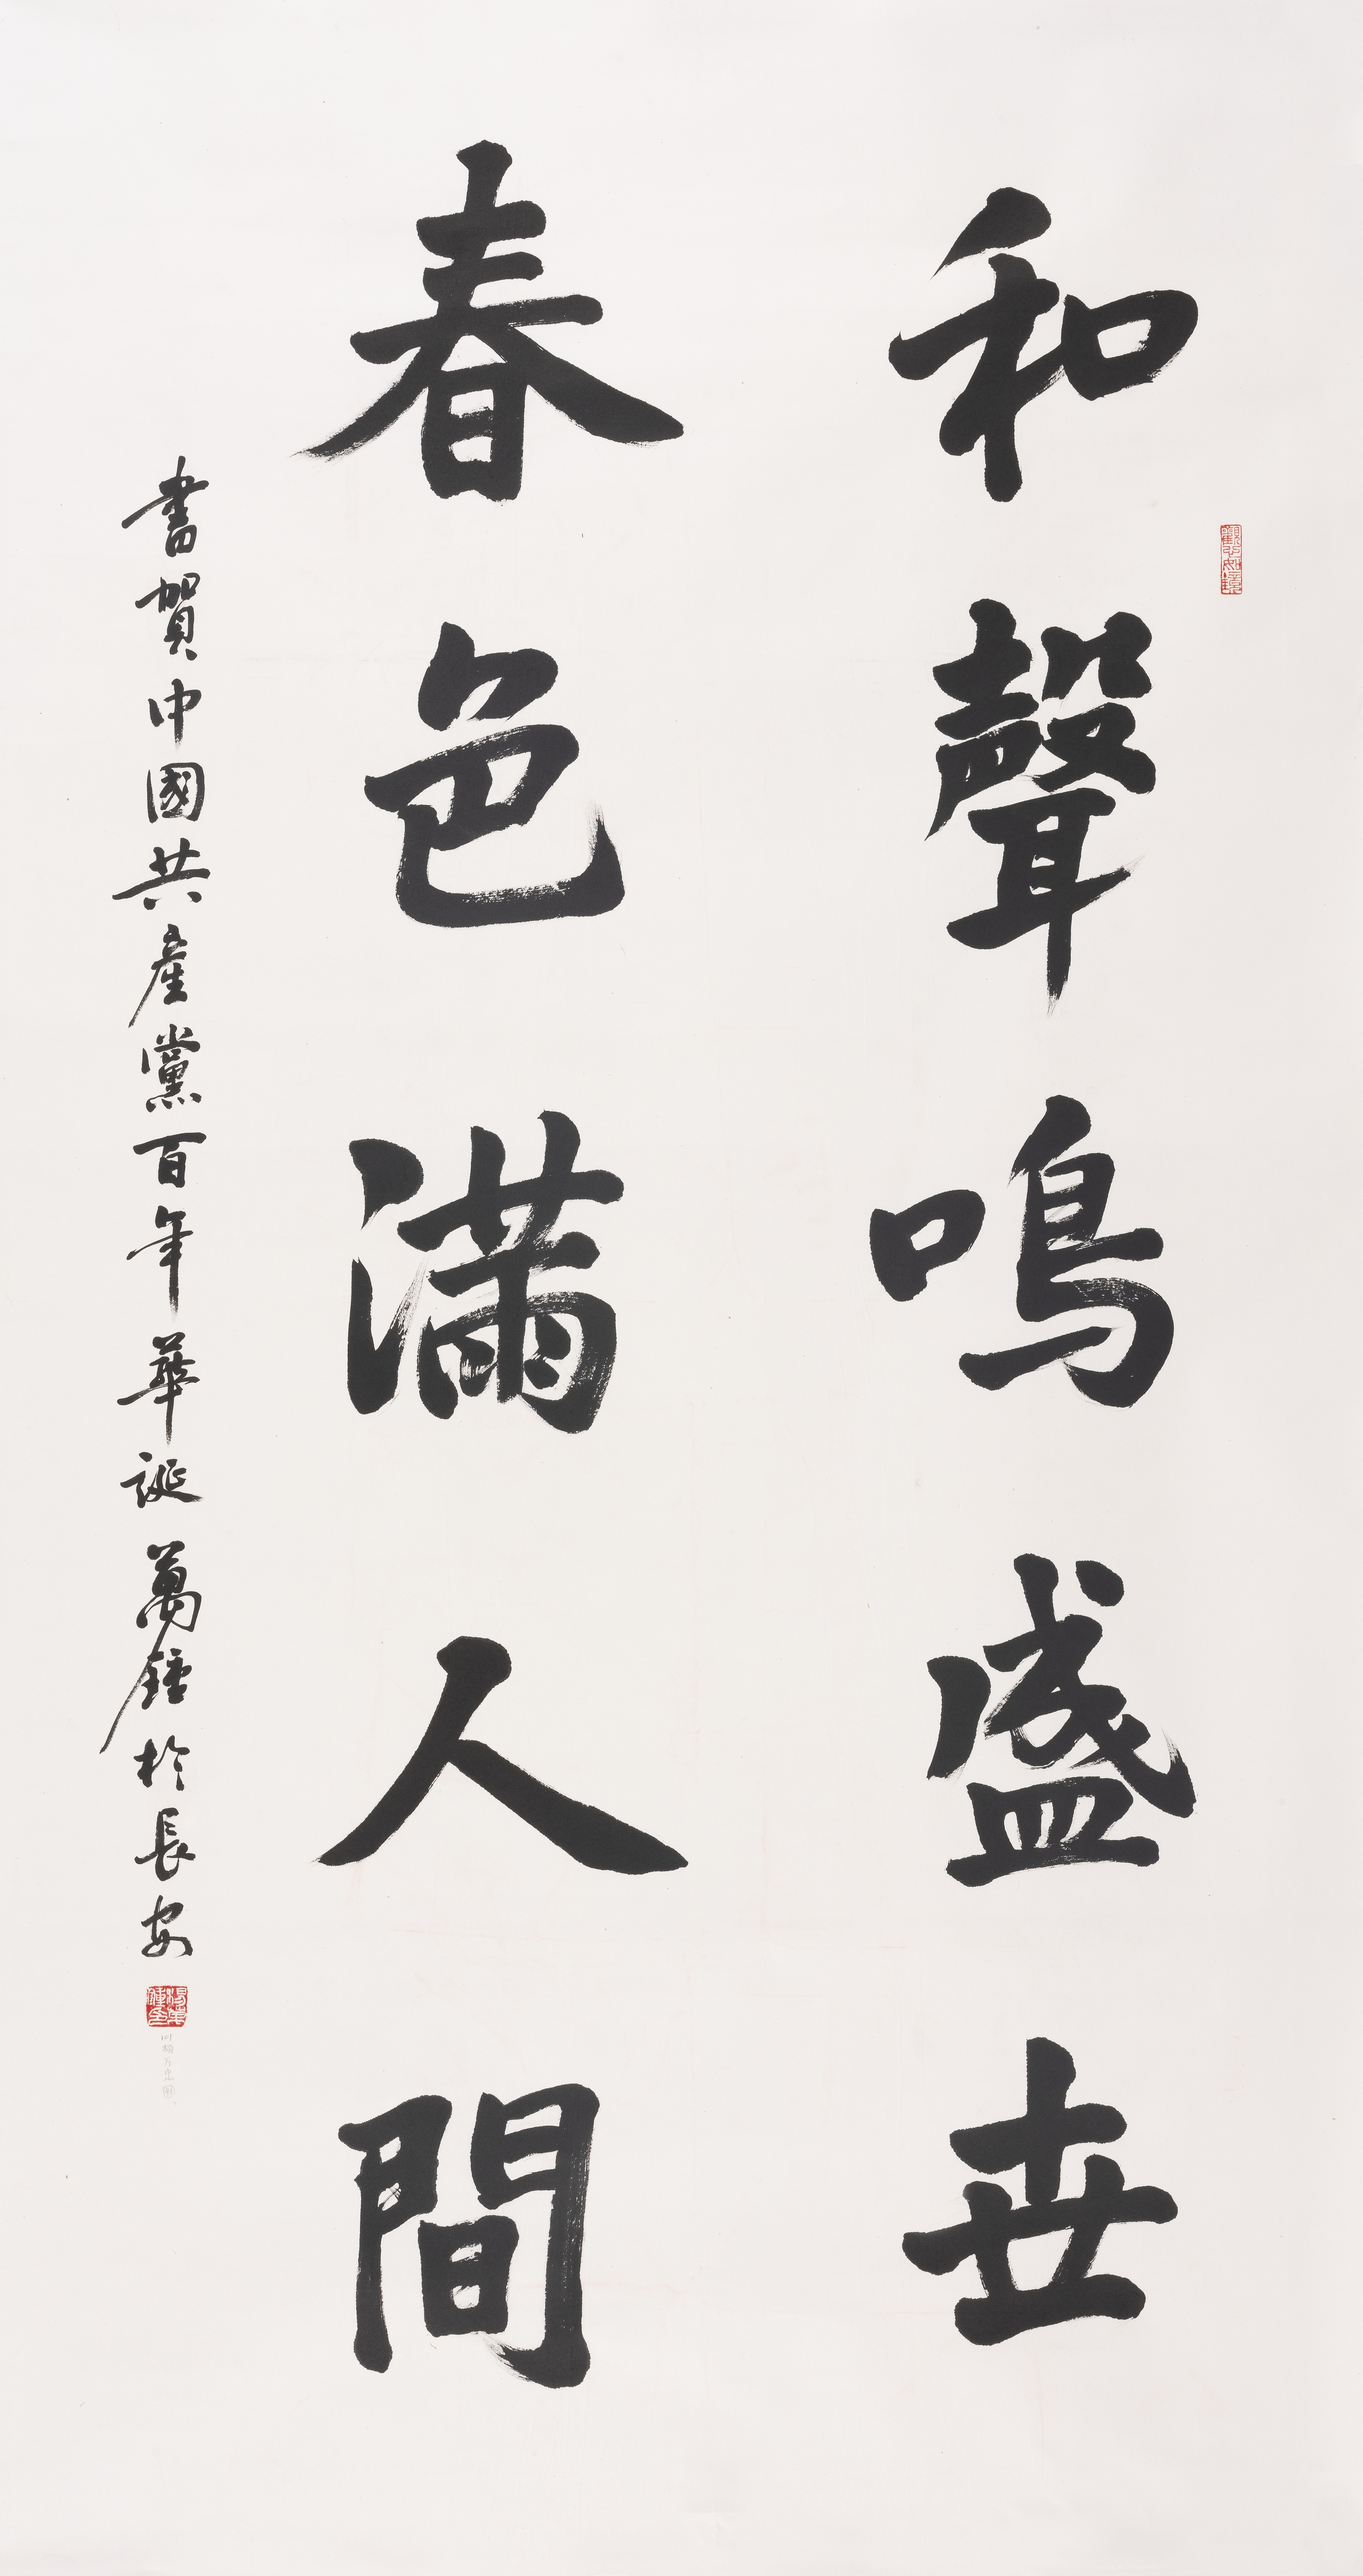 和聲鳴盛世
春色滿人間
書賀中國共產黨百年華誕 萬鍾於長安
觀心如鏡